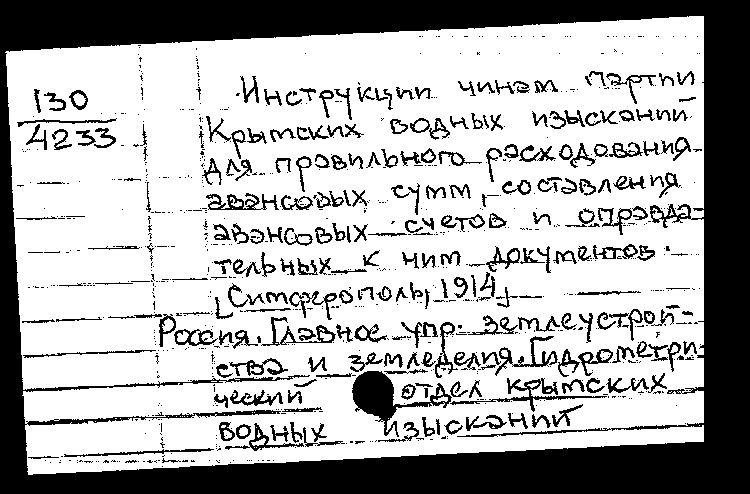 130
4233
Инструкции чинам партии
Крымских водных изысканий
для правильного расходования
авансовых сумм, составления
авансовых счетов и оправда-
тельных к ним документов.
[Симферополь, 1914]
Россия. Главное упр. землеустрой-
ства и земледелия. Гидрометри-
ческий отдел крымских
водных изысканий